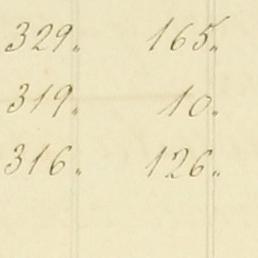 329„ 165„
319„ 10„
316„ 126„